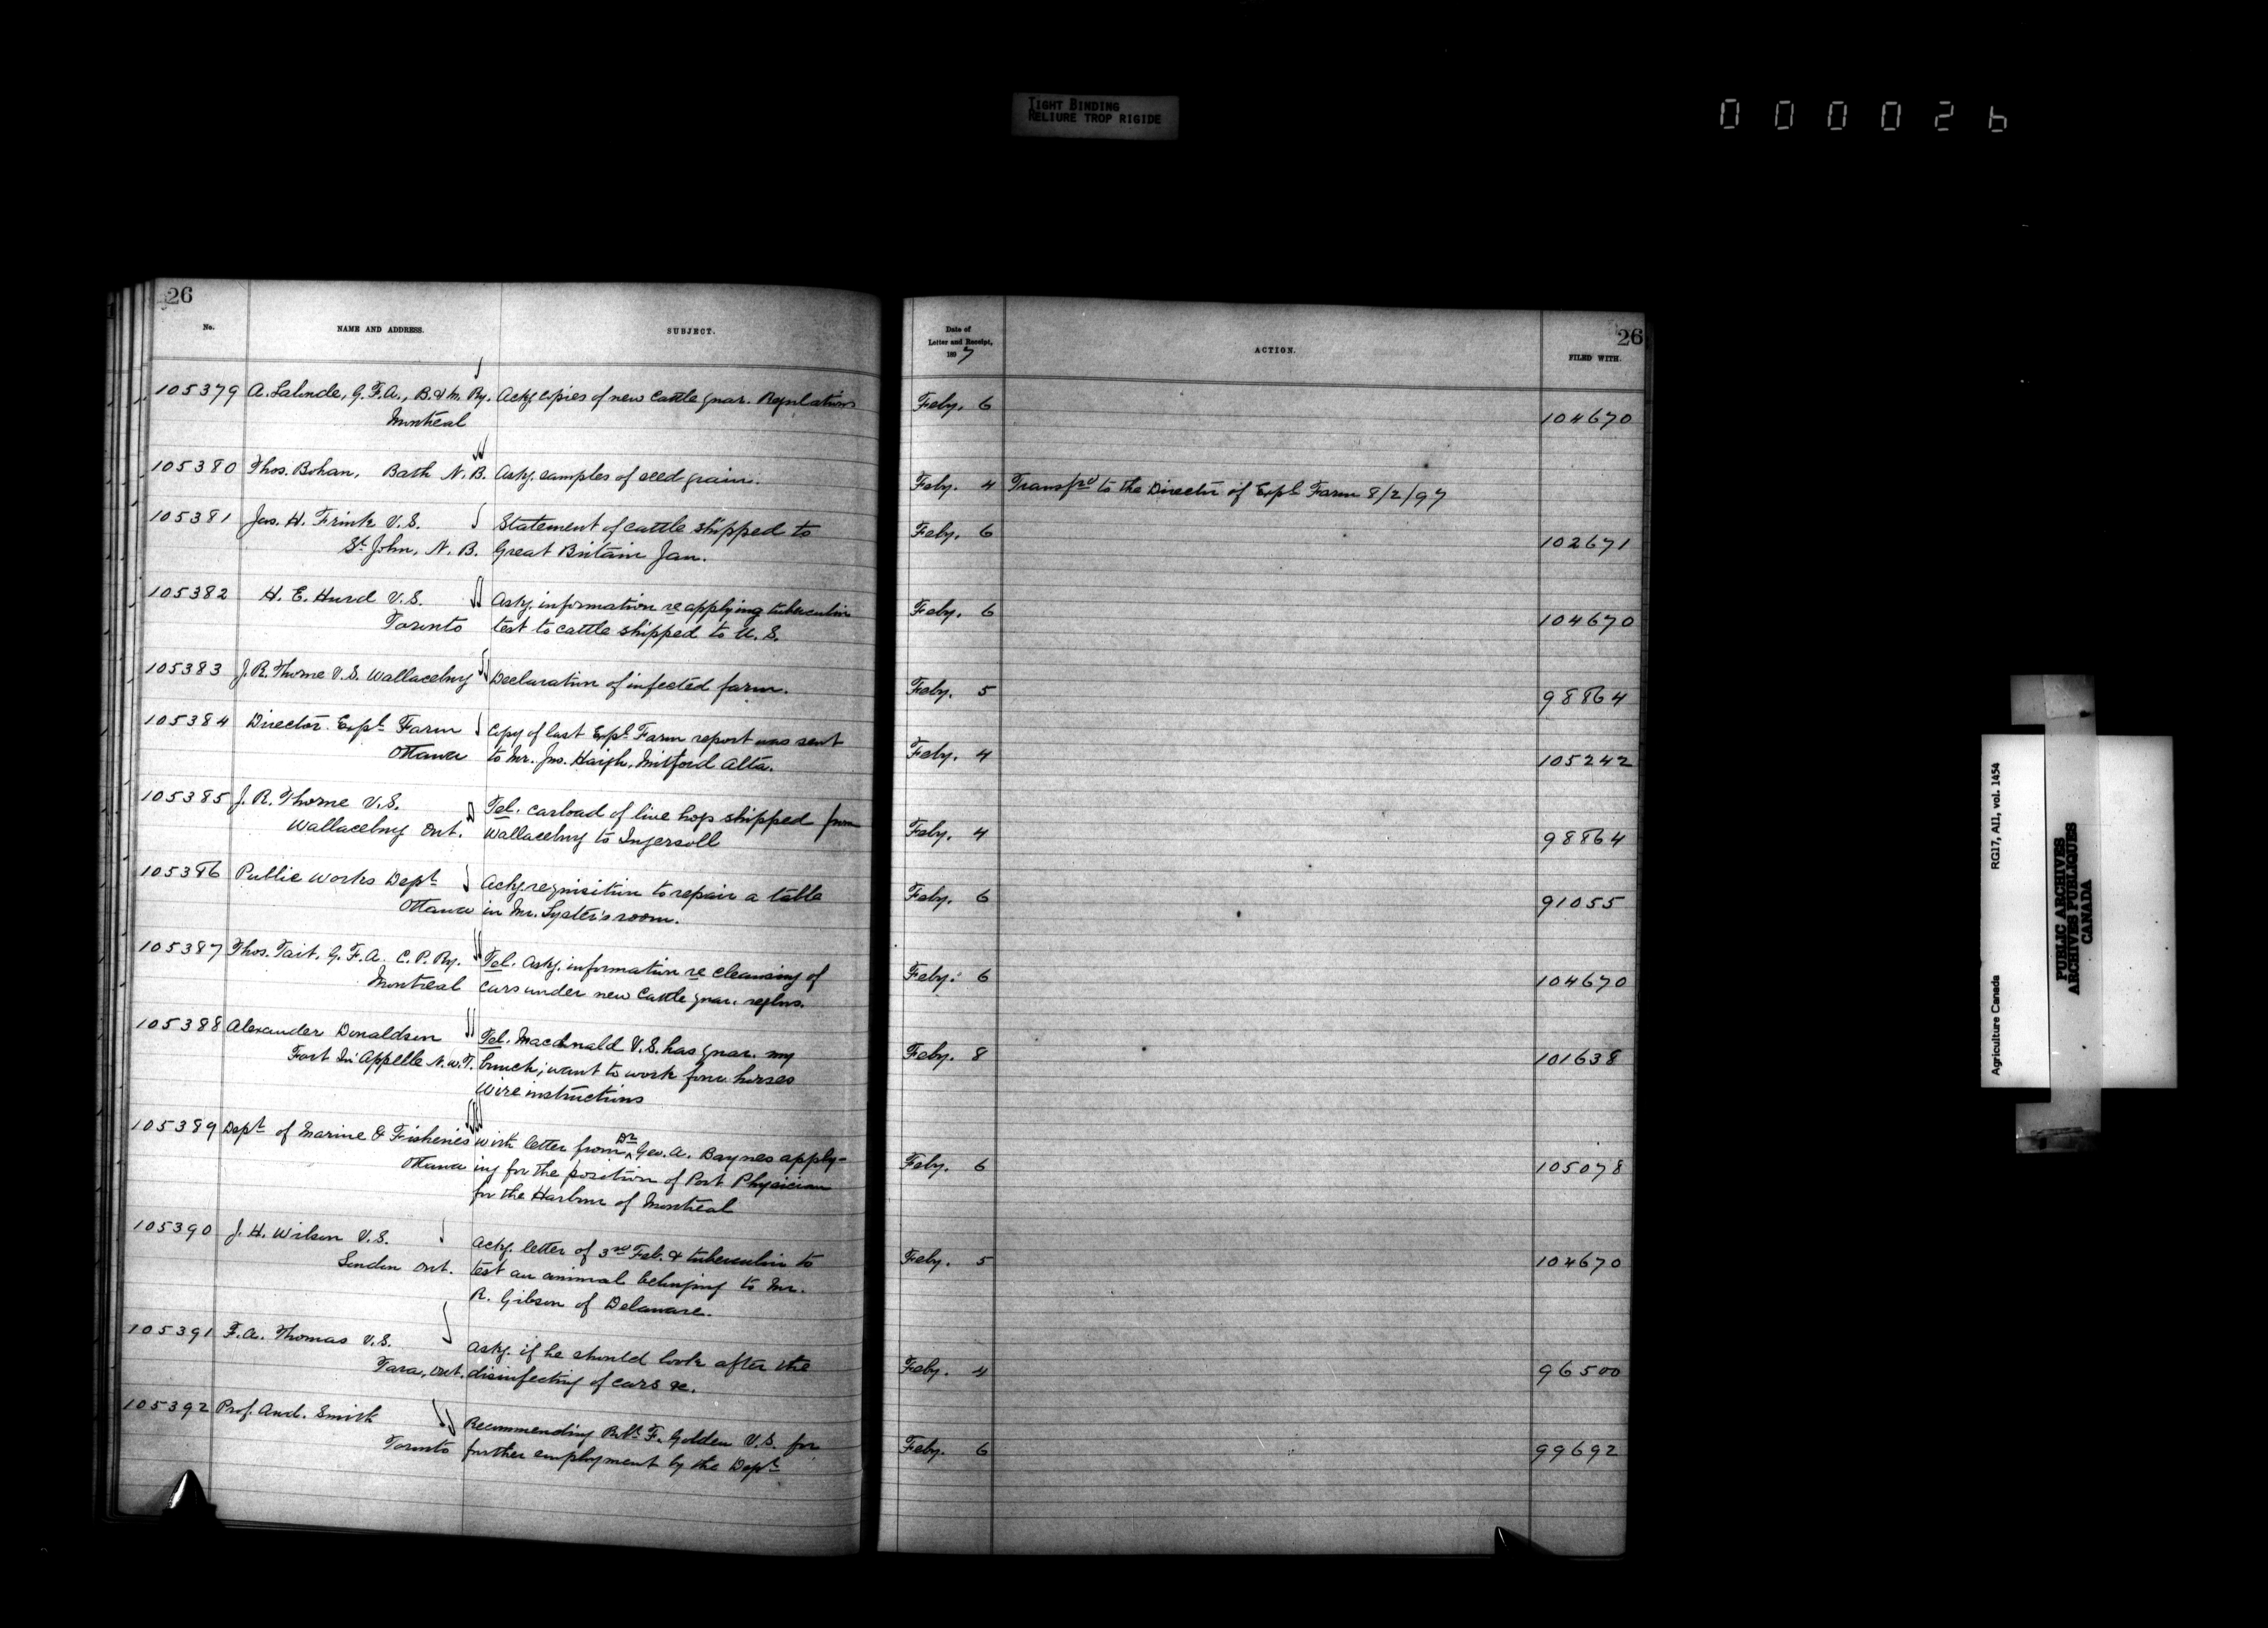 TIGHT BINDING
RELIURE TROP RIGIDE
000026
26
No.
NAME AND ADDRESS.
SUBJECT.
105379 A. Lalande, G.F.A., B. & M. Ry. Ackg copies of new cattle quar. Regulations
Montreal
105380 Thos. Bohan, Bath N.B. Askg. samples of seed grain.
105381 Jas. H. Frink V.S. Statement of cattle shipped to
St. John, N.B. Great Britain Jan.
105382 H. E. Hurd V.S. Askg. information re applying tuberculin
Toronto test to cattle shipped to U.S.
105383 J. R. Thorne V.S. Wallaceburg Declaration of infected farm.
105384 Director Expl. Farm Copy of last Expl. Farm report was sent
Ottawa to Mr. Jno. Haigh, Mitford Alta.
105385 J. R. Thorne V.S. Tel. carload of live hogs shipped from
Wallaceburg Ont. Wallaceburg to Ingersoll
105386 Public Works Dept Ackg. requisition to repair a table
Ottawa in Mr. Lyster's room.
105387 Thos. Tait, G.F.A. C.P. Ry. Tel. Askg. information re cleansing of
Montreal cars under new cattle quar. reglns.
105388 Alexander Donaldson Tel. Macdonald V.S. has quar. my
Fort Qu'Appelle N.W.T. bunch; want to work four horses
Wire instructions
105389 Dept of Marine & Fisheries With letter from Dr Geo. A. Baynes apply-
Ottawa ing for the position of Port Physician
for the Harbour of Montreal
105390 J. H. Wilson V.S. Ackg. letter of 3rd Feb. & tuberculin to
London Ont. test an animal belonging to Mr.
R. Gibson of Delaware.
105391 F. A. Thomas V.S. Askg. if he should look after the
Tara, Ont. disinfecting of cars &c.
105392 Prof. And. Smith Recommending Robt. F. Golden V.S. for
Toronto further employment by the Dept
26
Date of
Letter and Receipt,
1897
ACTION.
FILED WITH.
Feby. 6 104670
Feby. 4 Transfrd to the Director of Expl Farm 8/2/97
Feby. 6 102671
Feby. 6 104670
Feby. 5 98864
Feby. 4 105242
Feby. 4 98864
Feby. 6 91055
Feby. 6 104670
Feby. 8 101638
Feby. 6 105078
Feby. 5 104670
Feby. 4 96500
Feby. 6 99692
Agriculture Canada RG17, AII, vol. 1454
PUBLIC ARCHIVES
ARCHIVES PUBLIQUES
CANADA